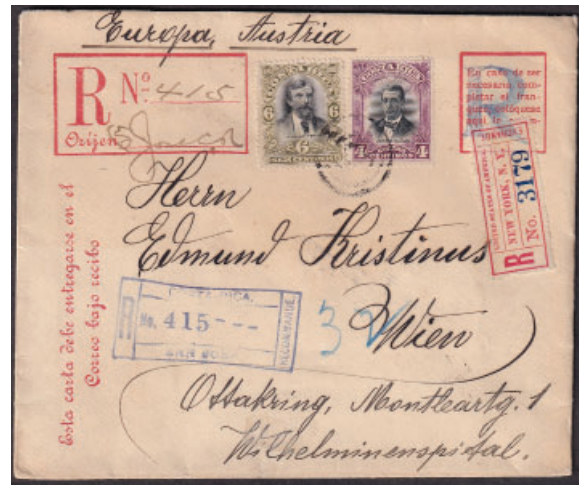 Europa, Austria
R Nº 415
Oríjen
COSTA RICA
6 6
6
COSTA RICA
4 4
En caso de ser
necesario com-
pletar el fran-
aquí
UNITED STATES OF AMERICA
NEW YORK, N. Y.
R No. 3179
Herrn
Edmund Kristinus
Wien
Ottakring, Montleartg. 1
Wilhelminenspital.
COSTA RICA.
R No. 415---
SAN JOSE
RECOMMANDÉ
32
Esta carta debe entregarse en el
Correo bajo recibo